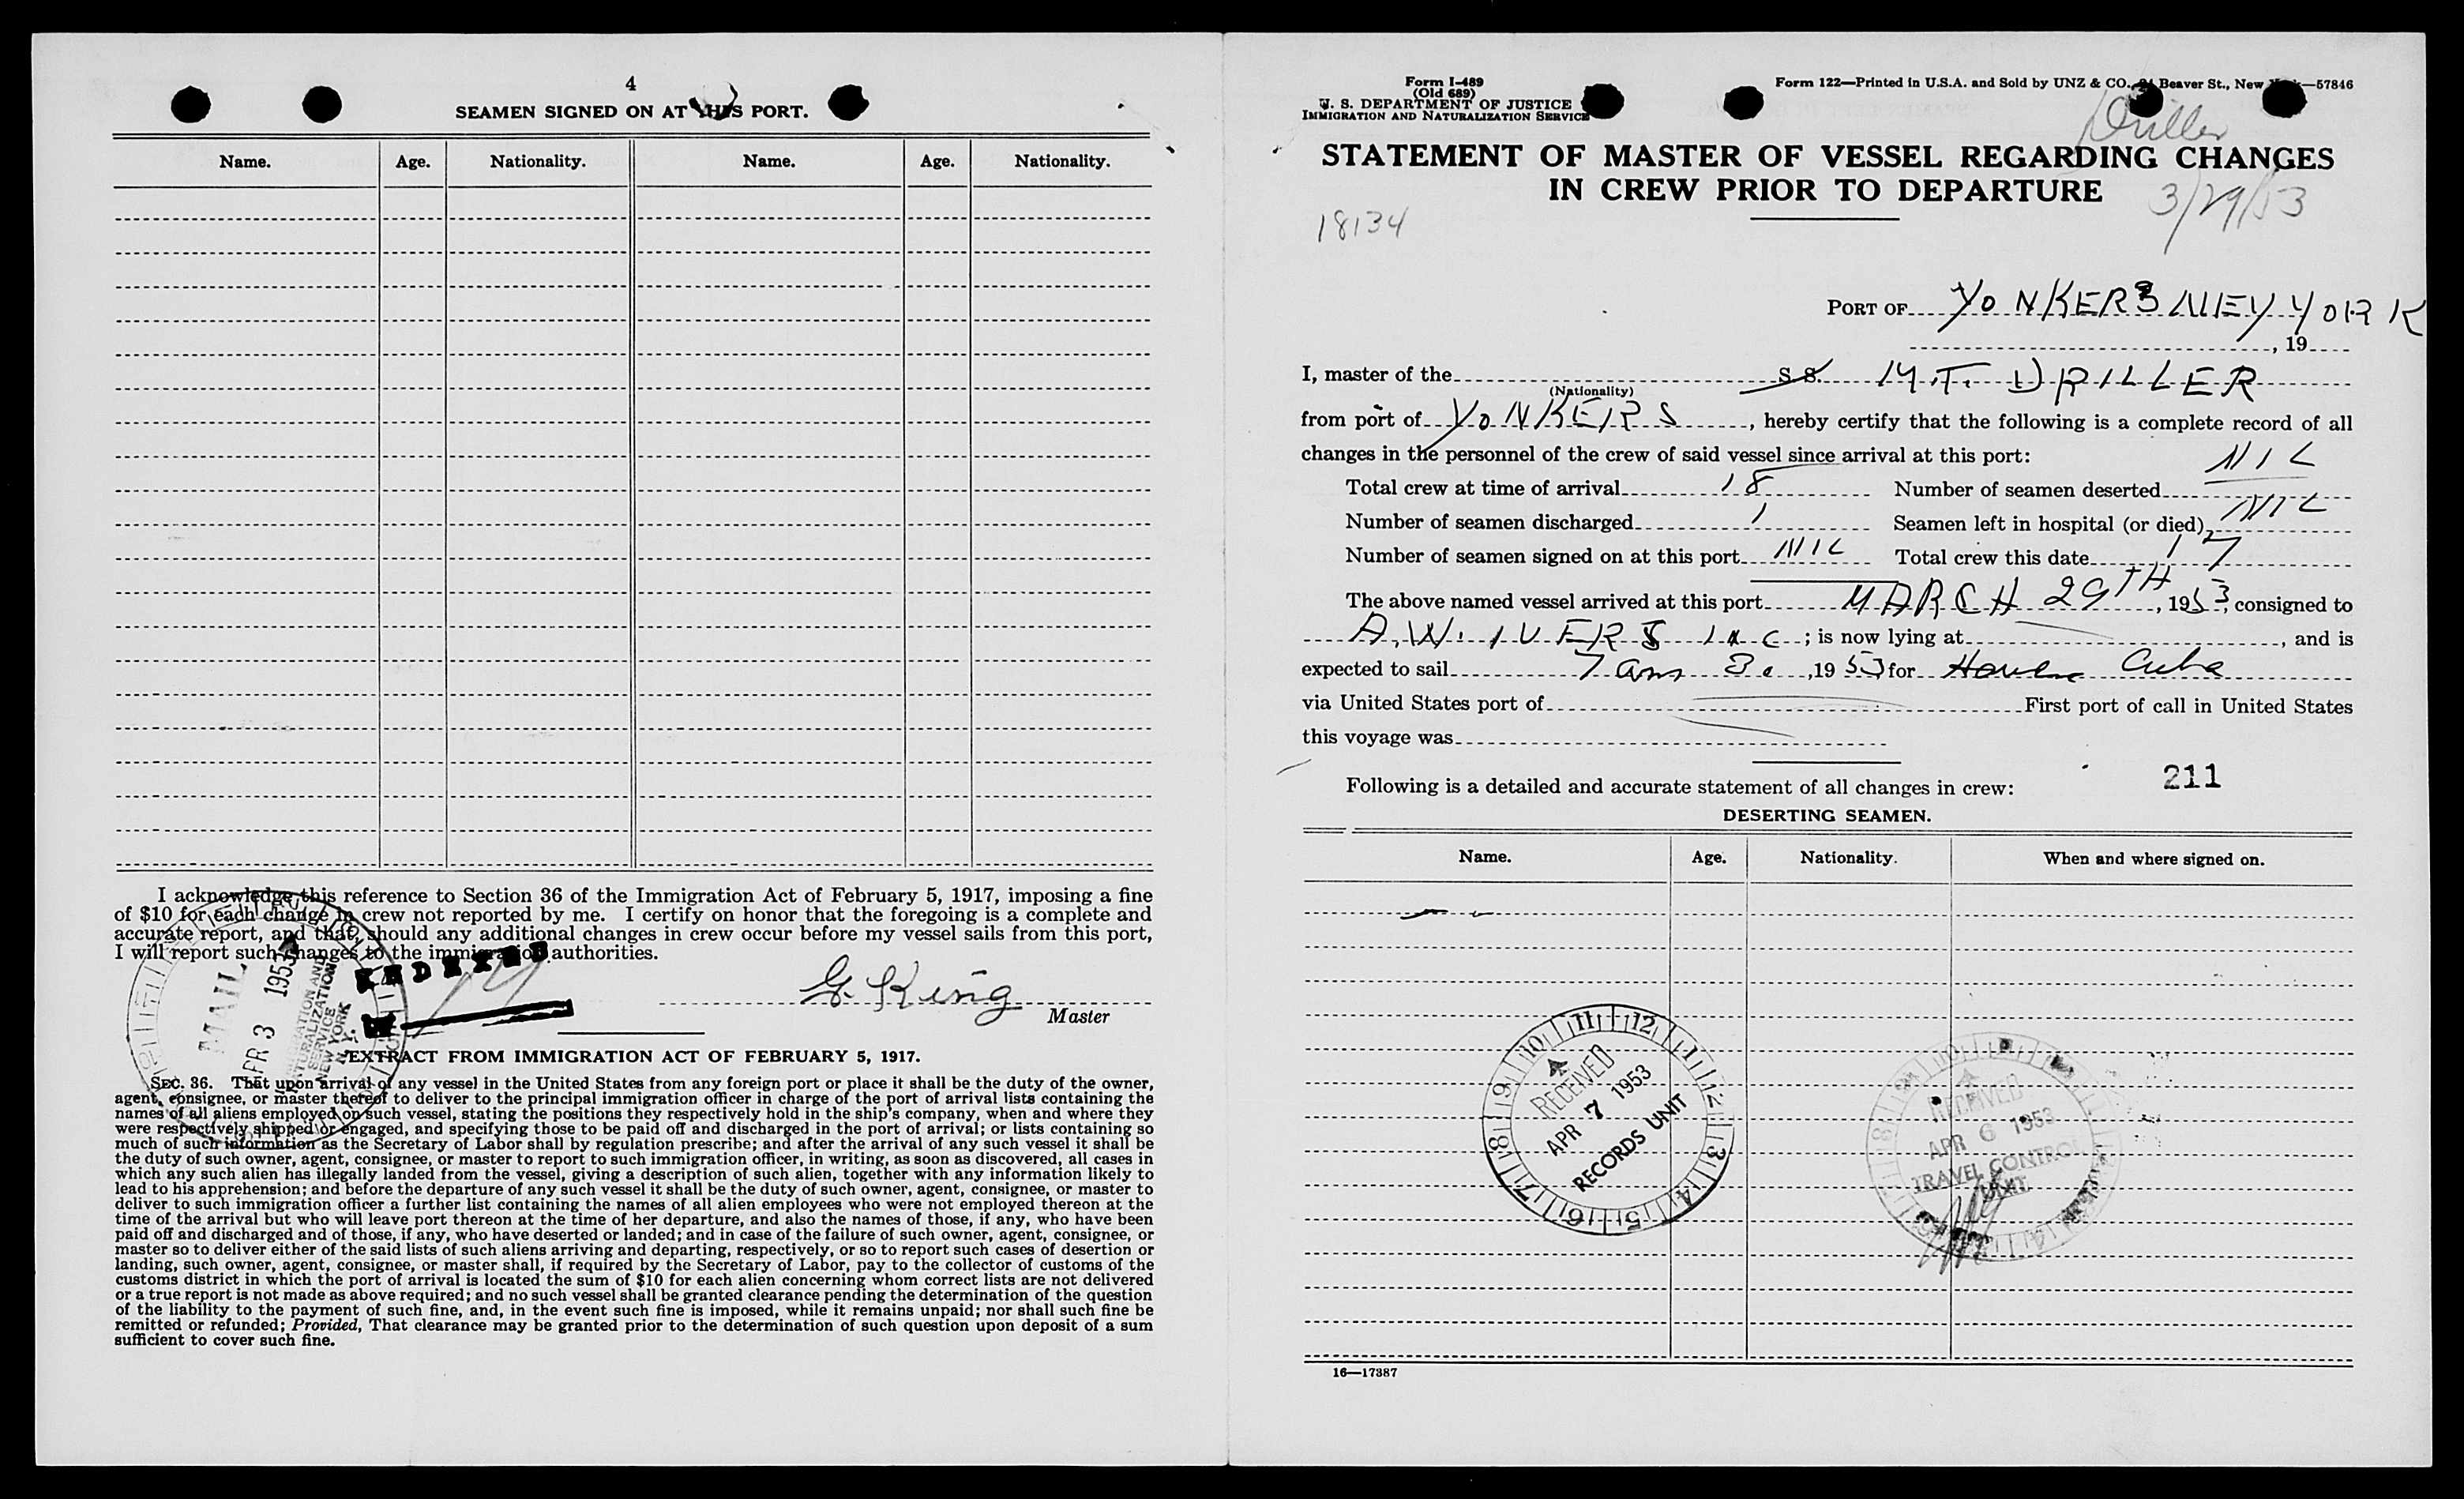 4
SEAMEN SIGNED ON AT THIS PORT.
Name. Age. Nationality. Name. Age. Nationality.
I acknowledge this reference to Section 36 of the Immigration Act of February 5, 1917, imposing a fine
of $10 for each change in crew not reported by me. I certify on honor that the foregoing is a complete and
accurate report, and that, should any additional changes in crew occur before my vessel sails from this port,
I will report such changes to the immigration authorities.
INDEXED
MAIL
APR 3 1953
IMMIGRATION AND
NATURALIZATION
SERVICE
NEW YORK
N. Y.
G. King
Master
EXTRACT FROM IMMIGRATION ACT OF FEBRUARY 5, 1917.
SEC. 36. That upon arrival of any vessel in the United States from any foreign port or place it shall be the duty of the owner,
agent, consignee, or master thereof to deliver to the principal immigration officer in charge of the port of arrival lists containing the
names of all aliens employed on such vessel, stating the positions they respectively hold in the ship's company, when and where they
were respectively shipped or engaged, and specifying those to be paid off and discharged in the port of arrival; or lists containing so
much of such information as the Secretary of Labor shall by regulation prescribe; and after the arrival of any such vessel it shall be
the duty of such owner, agent, consignee, or master to report to such immigration officer, in writing, as soon as discovered, all cases in
which any such alien has illegally landed from the vessel, giving a description of such alien, together with any information likely to
lead to his apprehension; and before the departure of any such vessel it shall be the duty of such owner, agent, consignee, or master to
deliver to such immigration officer a further list containing the names of all alien employees who were not employed thereon at the
time of the arrival but who will leave port thereon at the time of her departure, and also the names of those, if any, who have been
paid off and discharged and of those, if any, who have deserted or landed; and in case of the failure of such owner, agent, consignee, or
master so to deliver either of the said lists of such aliens arriving and departing, respectively, or so to report such cases of desertion or
landing, such owner, agent, consignee, or master shall, if required by the Secretary of Labor, pay to the collector of customs of the
customs district in which the port of arrival is located the sum of $10 for each alien concerning whom correct lists are not delivered
or a true report is not made as above required; and no such vessel shall be granted clearance pending the determination of the question
of the liability to the payment of such fine, and, in the event such fine is imposed, while it remains unpaid; nor shall such fine be
remitted or refunded; Provided, That clearance may be granted prior to the determination of such question upon deposit of a sum
sufficient to cover such fine.
Form I-489
(Old 689)
U. S. DEPARTMENT OF JUSTICE
IMMIGRATION AND NATURALIZATION SERVICE
Form 122—Printed in U.S.A. and Sold by UNZ & CO., Beaver St., New —57846
Driller
STATEMENT OF MASTER OF VESSEL REGARDING CHANGES
IN CREW PRIOR TO DEPARTURE
3/29/53
18134
PORT OF YONKERS NEY YORK
, 19
I, master of the S. S. M.T. DRILLER
(Nationality)
from port of YONKERS, hereby certify that the following is a complete record of all
changes in the personnel of the crew of said vessel since arrival at this port:
Total crew at time of arrival 18 Number of seamen deserted NIL
Number of seamen discharged 1 Seamen left in hospital (or died) NIL
Number of seamen signed on at this port NIL Total crew this date 17
The above named vessel arrived at this port MARCH 29TH, 1953, consigned to
A. W. IVERS INC; is now lying at , and is
expected to sail 7 am 30, 1953 for Cuba
via United States port of First port of call in United States
this voyage was
Following is a detailed and accurate statement of all changes in crew:
211
DESERTING SEAMEN.
Name. Age. Nationality. When and where signed on.
RECEIVED
APR 7 1953
RECORDS UNIT
RECEIVED
APR 6 1953
TRAVEL CONTROL
UNIT
16—17387